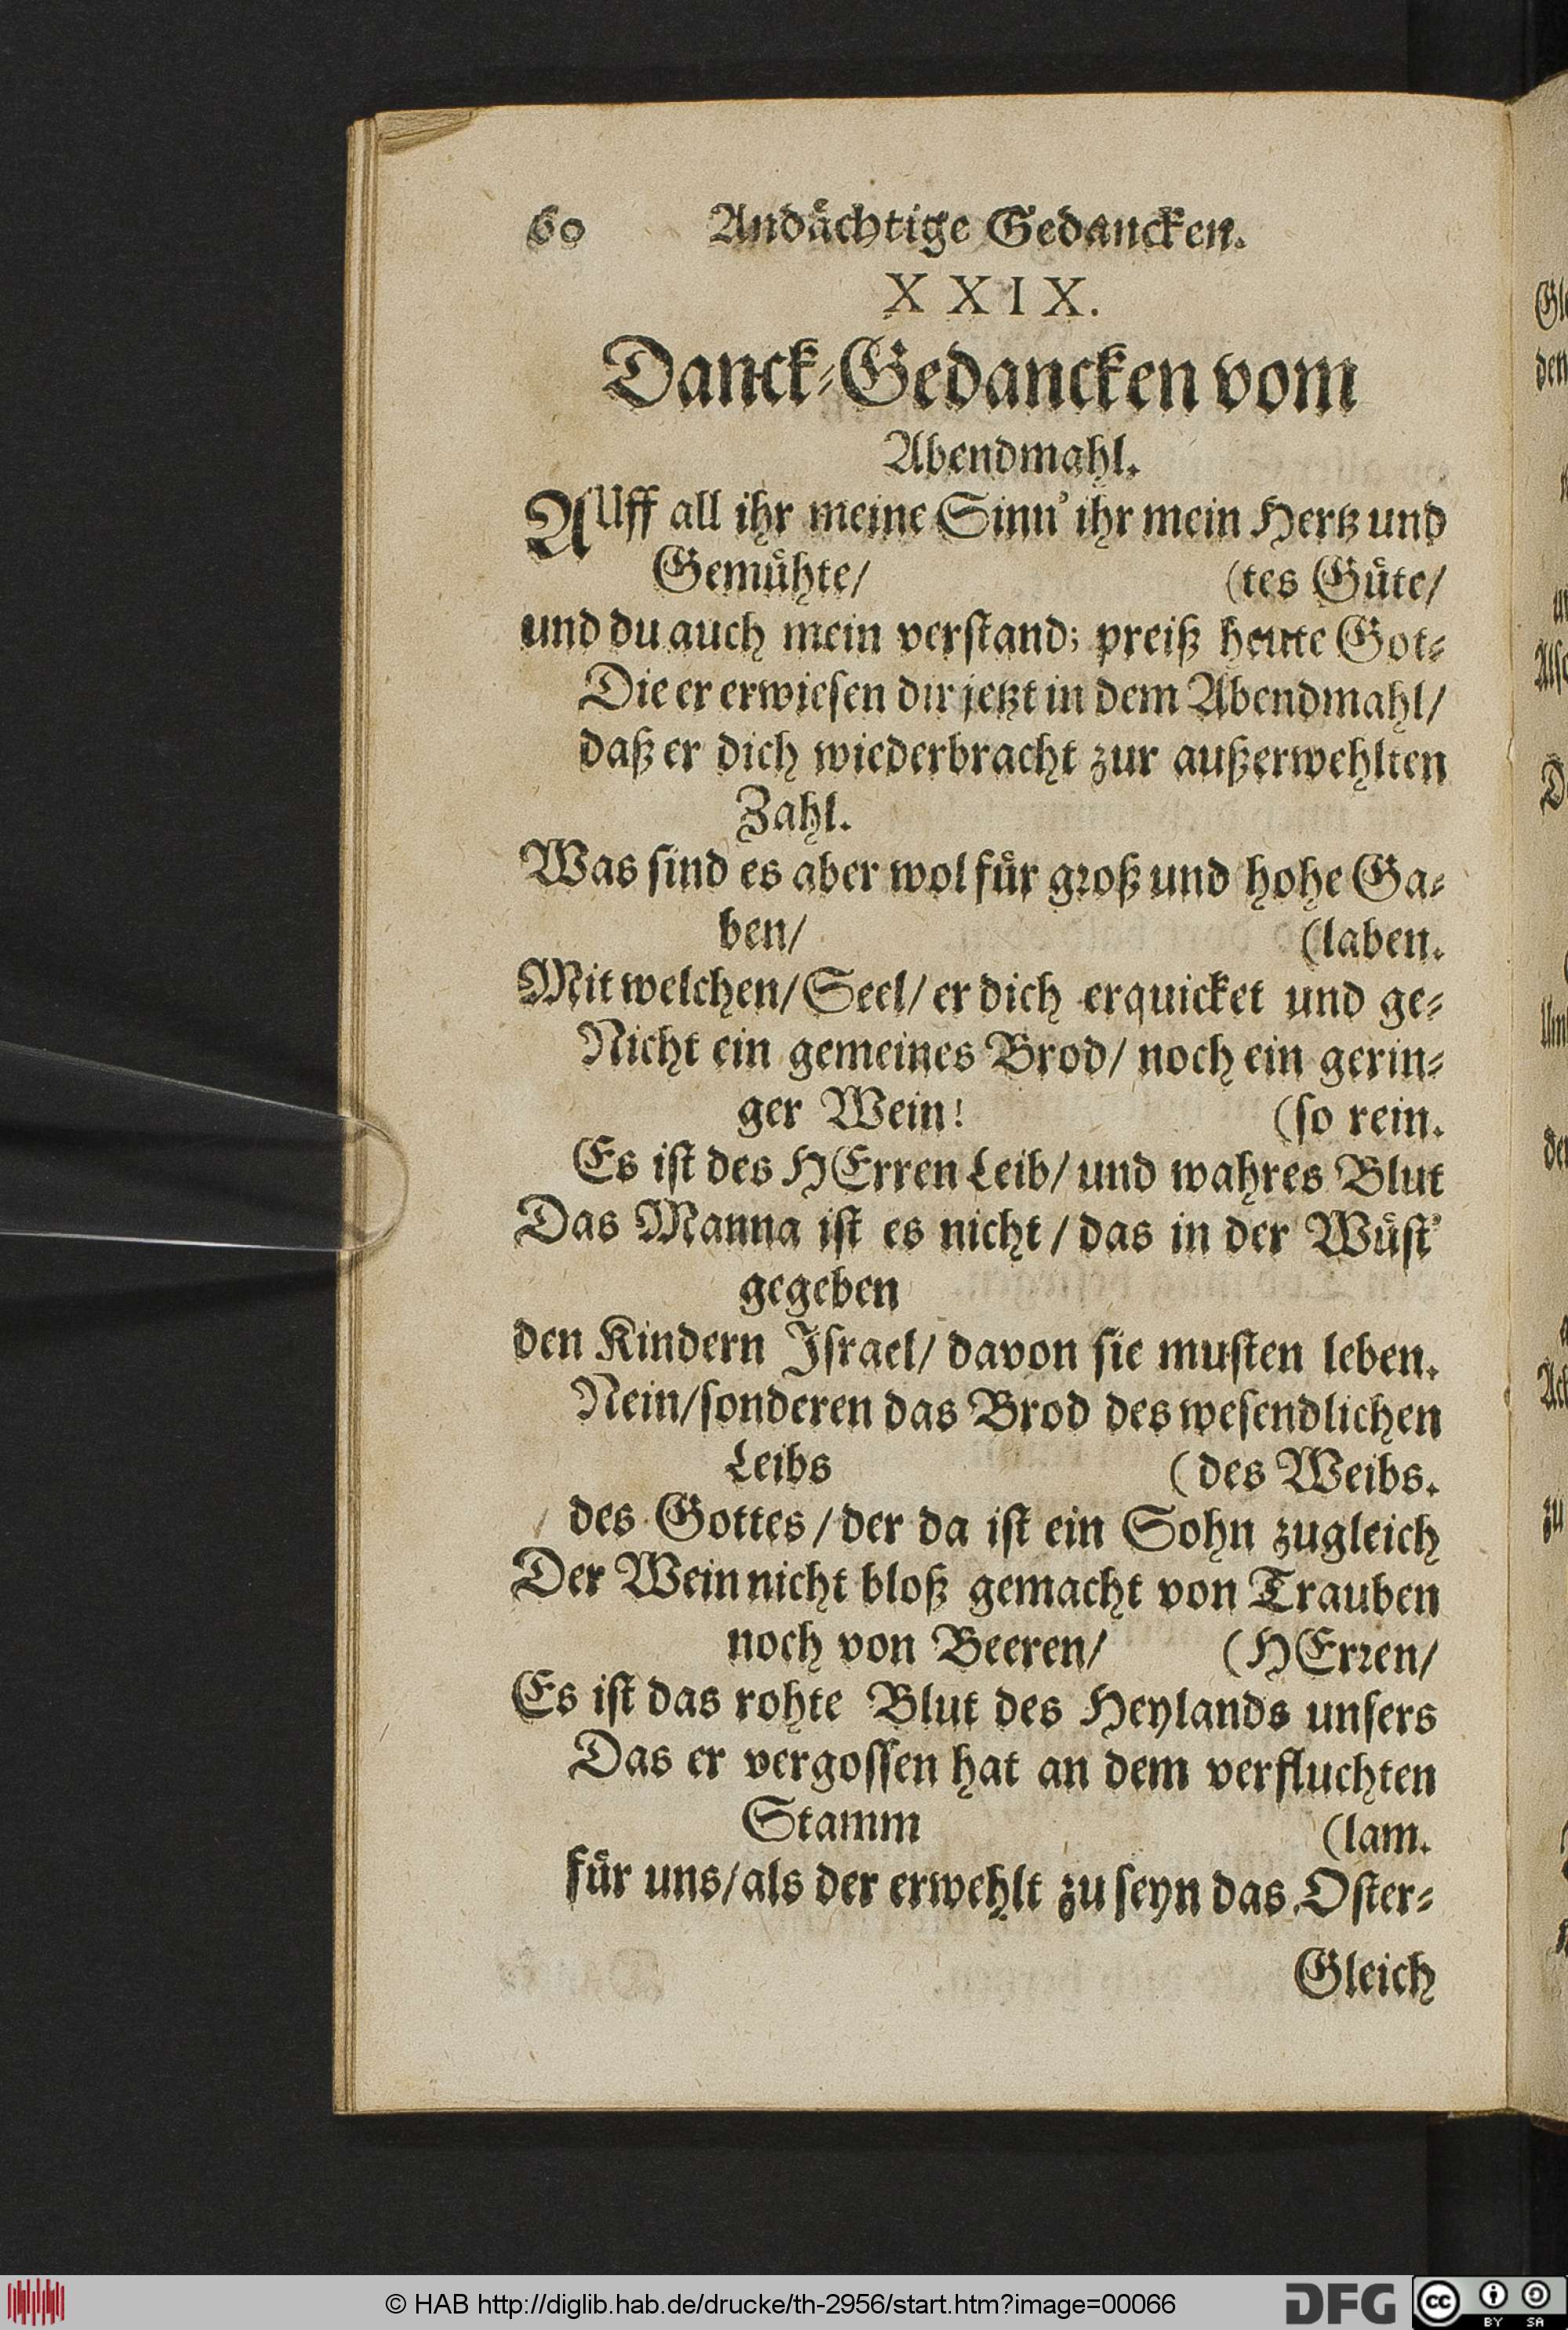 60 Andächtige Gedancken.
XXIX.
Danck-Gedancken vom
Abendmahl.
AUff all ihr meine Sinn' ihr mein Hertz und
Gemühte/ (tes Güte/
und du auch mein verstand; preiß heute Got-
Die er erwiesen dir jetzt in dem Abendmahl/
daß er dich wiederbracht zur außerwehlten
Zahl.
Was sind es aber wol für groß und hohe Ga-
ben/ (laben.
Mit welchen/ Seel/ er dich erquicket und ge-
Nicht ein gemeines Brod/ noch ein gerin-
ger Wein! (so rein.
Es ist des HErren Leib/ und wahres Blut
Das Manna ist es nicht / das in der Wüst'
gegeben
den Kindern Israel/ davon sie musten leben.
Nein/ sonderen das Brod des wesendlichen
Leibs (des Weibs.
des Gottes / der da ist ein Sohn zugleich
Der Wein nicht bloß gemacht von Trauben
noch von Beeren/ (HErren/
Es ist das rohte Blut des Heylands unsers
Das er vergossen hat an dem verfluchten
Stamm (lam.
für uns/ als der erwehlt zu seyn das Oster-
Gleich
© HAB http://diglib.hab.de/drucke/th-2956/start.htm?image=00066
DFG
cc BY SA